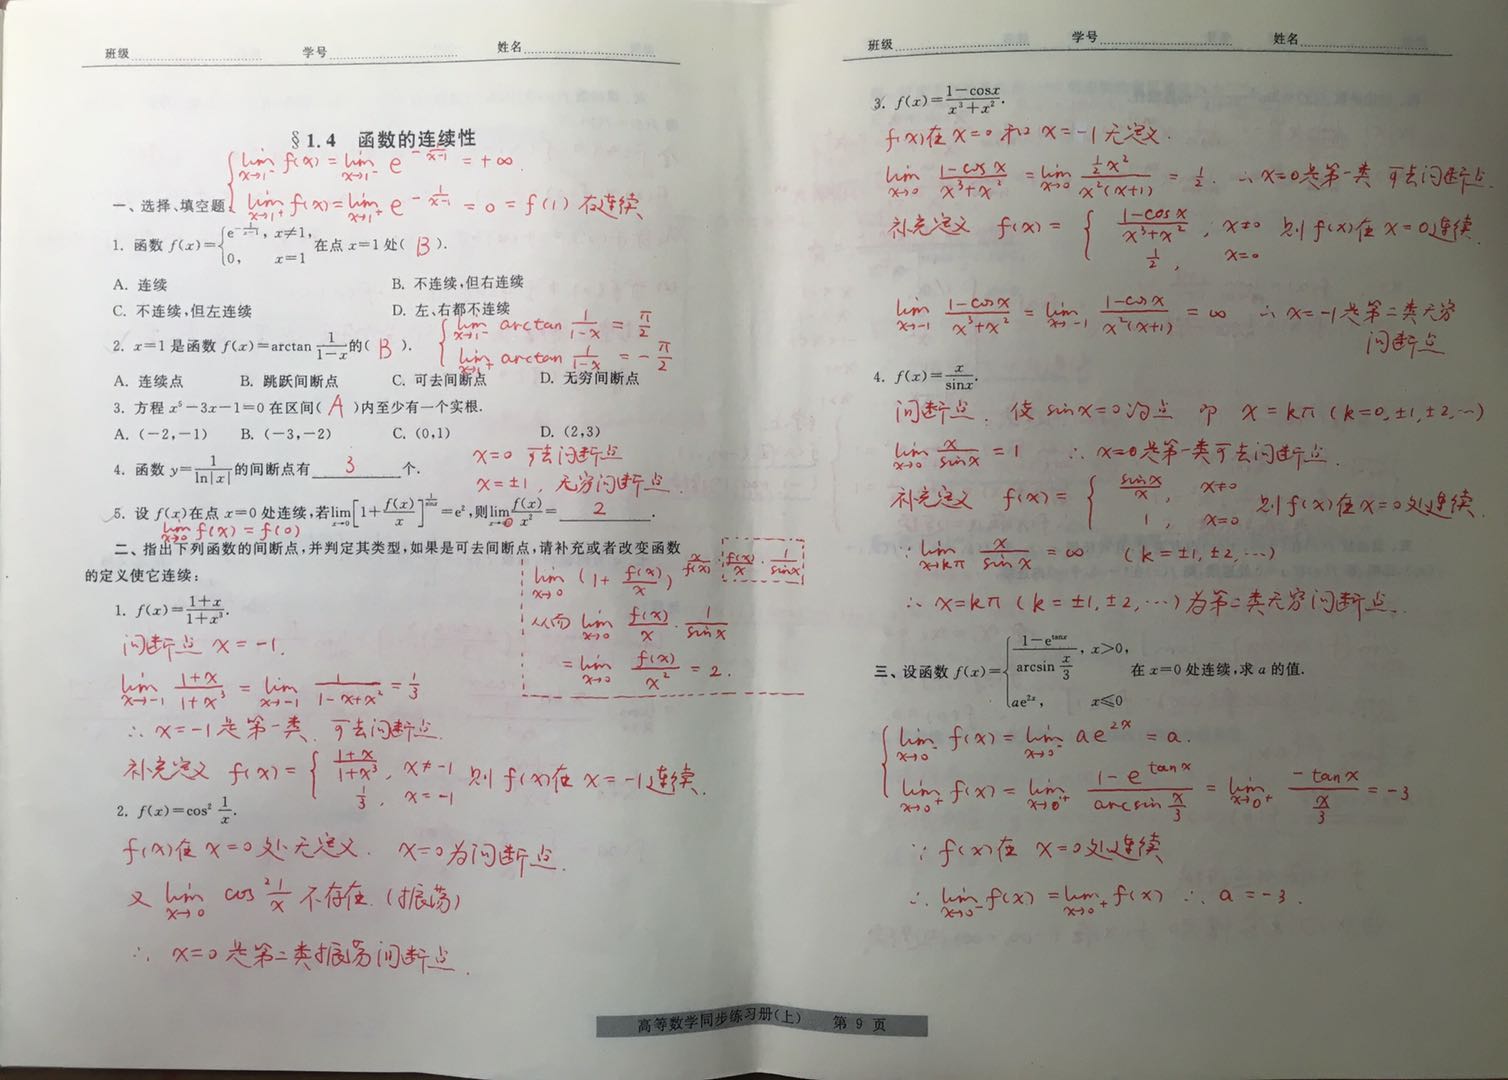 班级 学号 姓名
§1.4 函数的连续性
{ lim_{x→1⁻} f(x) = lim_{x→1⁻} e^{-1/(x-1)} = +∞.
lim_{x→1⁺} f(x) = lim_{x→1⁺} e^{-1/(x-1)} = 0 = f(1) 右连续
一、选择、填空题:
1. 函数 f(x)={ e^{-1/(x-1)}, x≠1, 0, x=1 在点 x=1 处( B ).
A. 连续 B. 不连续,但右连续
C. 不连续,但左连续 D. 左、右都不连续
{ lim_{x→1⁻} arctan 1/(1-x) = π/2
lim_{x→1⁺} arctan 1/(1-x) = -π/2
2. x=1 是函数 f(x)=arctan 1/(1-x) 的( B ).
A. 连续点 B. 跳跃间断点 C. 可去间断点 D. 无穷间断点
3. 方程 x⁵-3x-1=0 在区间( A )内至少有一个实根.
A. (-2,-1) B. (-3,-2) C. (0,1) D. (2,3)
4. 函数 y=1/ln|x| 的间断点有 3 个.
x=0 可去间断点
x=±1, 无穷间断点.
5. 设 f(x)在点 x=0 处连续,若 lim_{x→0} [1+f(x)/x]^{1/sinx}=e²,则 lim_{x→0} f(x)/x²= 2 .
lim_{x→0} f(x)=f(0)
二、指出下列函数的间断点,并判定其类型,如果是可去间断点,请补充或者改变函数
的定义使它连续:
lim_{x→0} (1+f(x)/x)^{x/f(x) · f(x)/x · 1/sinx}
从而 lim_{x→0} f(x)/x · 1/sinx
= lim_{x→0} f(x)/x² = 2.
1. f(x)=(1+x)/(1+x³).
间断点 x=-1.
lim_{x→-1} (1+x)/(1+x³) = lim_{x→-1} 1/(1-x+x²) = 1/3
∴ x=-1是第一类 可去间断点.
补充定义 f(x)={ (1+x)/(1+x³), x≠-1 1/3, x=-1 则 f(x)在 x=-1连续.
2. f(x)=cos² 1/x.
f(x)在 x=0 处无定义. x=0为间断点.
又 lim_{x→0} cos² 1/x 不存在.(振荡)
∴ x=0是第二类振荡间断点.
高等数学同步练习册(上) 第 9 页
班级 学号 姓名
3. f(x)=(1-cosx)/(x³+x²).
f(x)在 x=0 和 x=-1 无定义.
lim_{x→0} (1-cosx)/(x³+x²) = lim_{x→0} (½x²)/(x²(x+1)) = 1/2. ∴ x=0是第一类 可去间断点.
补充定义 f(x)={ (1-cosx)/(x³+x²), x≠0 1/2, x=0 则 f(x)在 x=0连续.
lim_{x→-1} (1-cosx)/(x³+x²) = lim_{x→-1} (1-cosx)/(x²(x+1)) = ∞ ∴ x=-1是第二类无穷
间断点
4. f(x)=x/sinx.
间断点: 使 sinx=0的点 即 x=kπ (k=0,±1,±2,…)
lim_{x→0} x/sinx = 1 ∴ x=0是第一类可去间断点.
补充定义 f(x)={ sinx/x, x≠0 1, x=0 则f(x)在 x=0处连续.
∵ lim_{x→kπ} x/sinx = ∞ (k=±1,±2,…)
∴ x=kπ (k=±1,±2,…)为第二类无穷间断点.
三、设函数 f(x)={ (1-e^{tanx})/(arcsin x/3), x>0, ae^{2x}, x≤0 在 x=0 处连续,求 a 的值.
{ lim_{x→0⁻} f(x) = lim_{x→0⁻} ae^{2x} = a.
lim_{x→0⁺} f(x) = lim_{x→0⁺} (1-e^{tanx})/(arcsin x/3) = lim_{x→0⁺} (-tanx)/(x/3) = -3
∵ f(x)在 x=0处连续
∴ lim_{x→0⁻} f(x) = lim_{x→0⁺} f(x) ∴ a=-3.